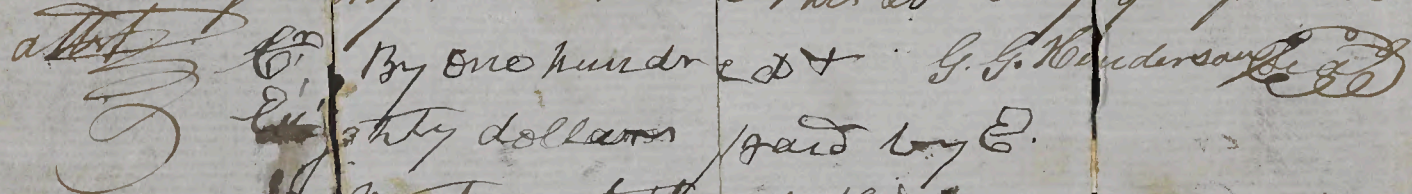 attest Cr. By one hundred & G. G. Henderson Seal
Eighty dollars paid by E.